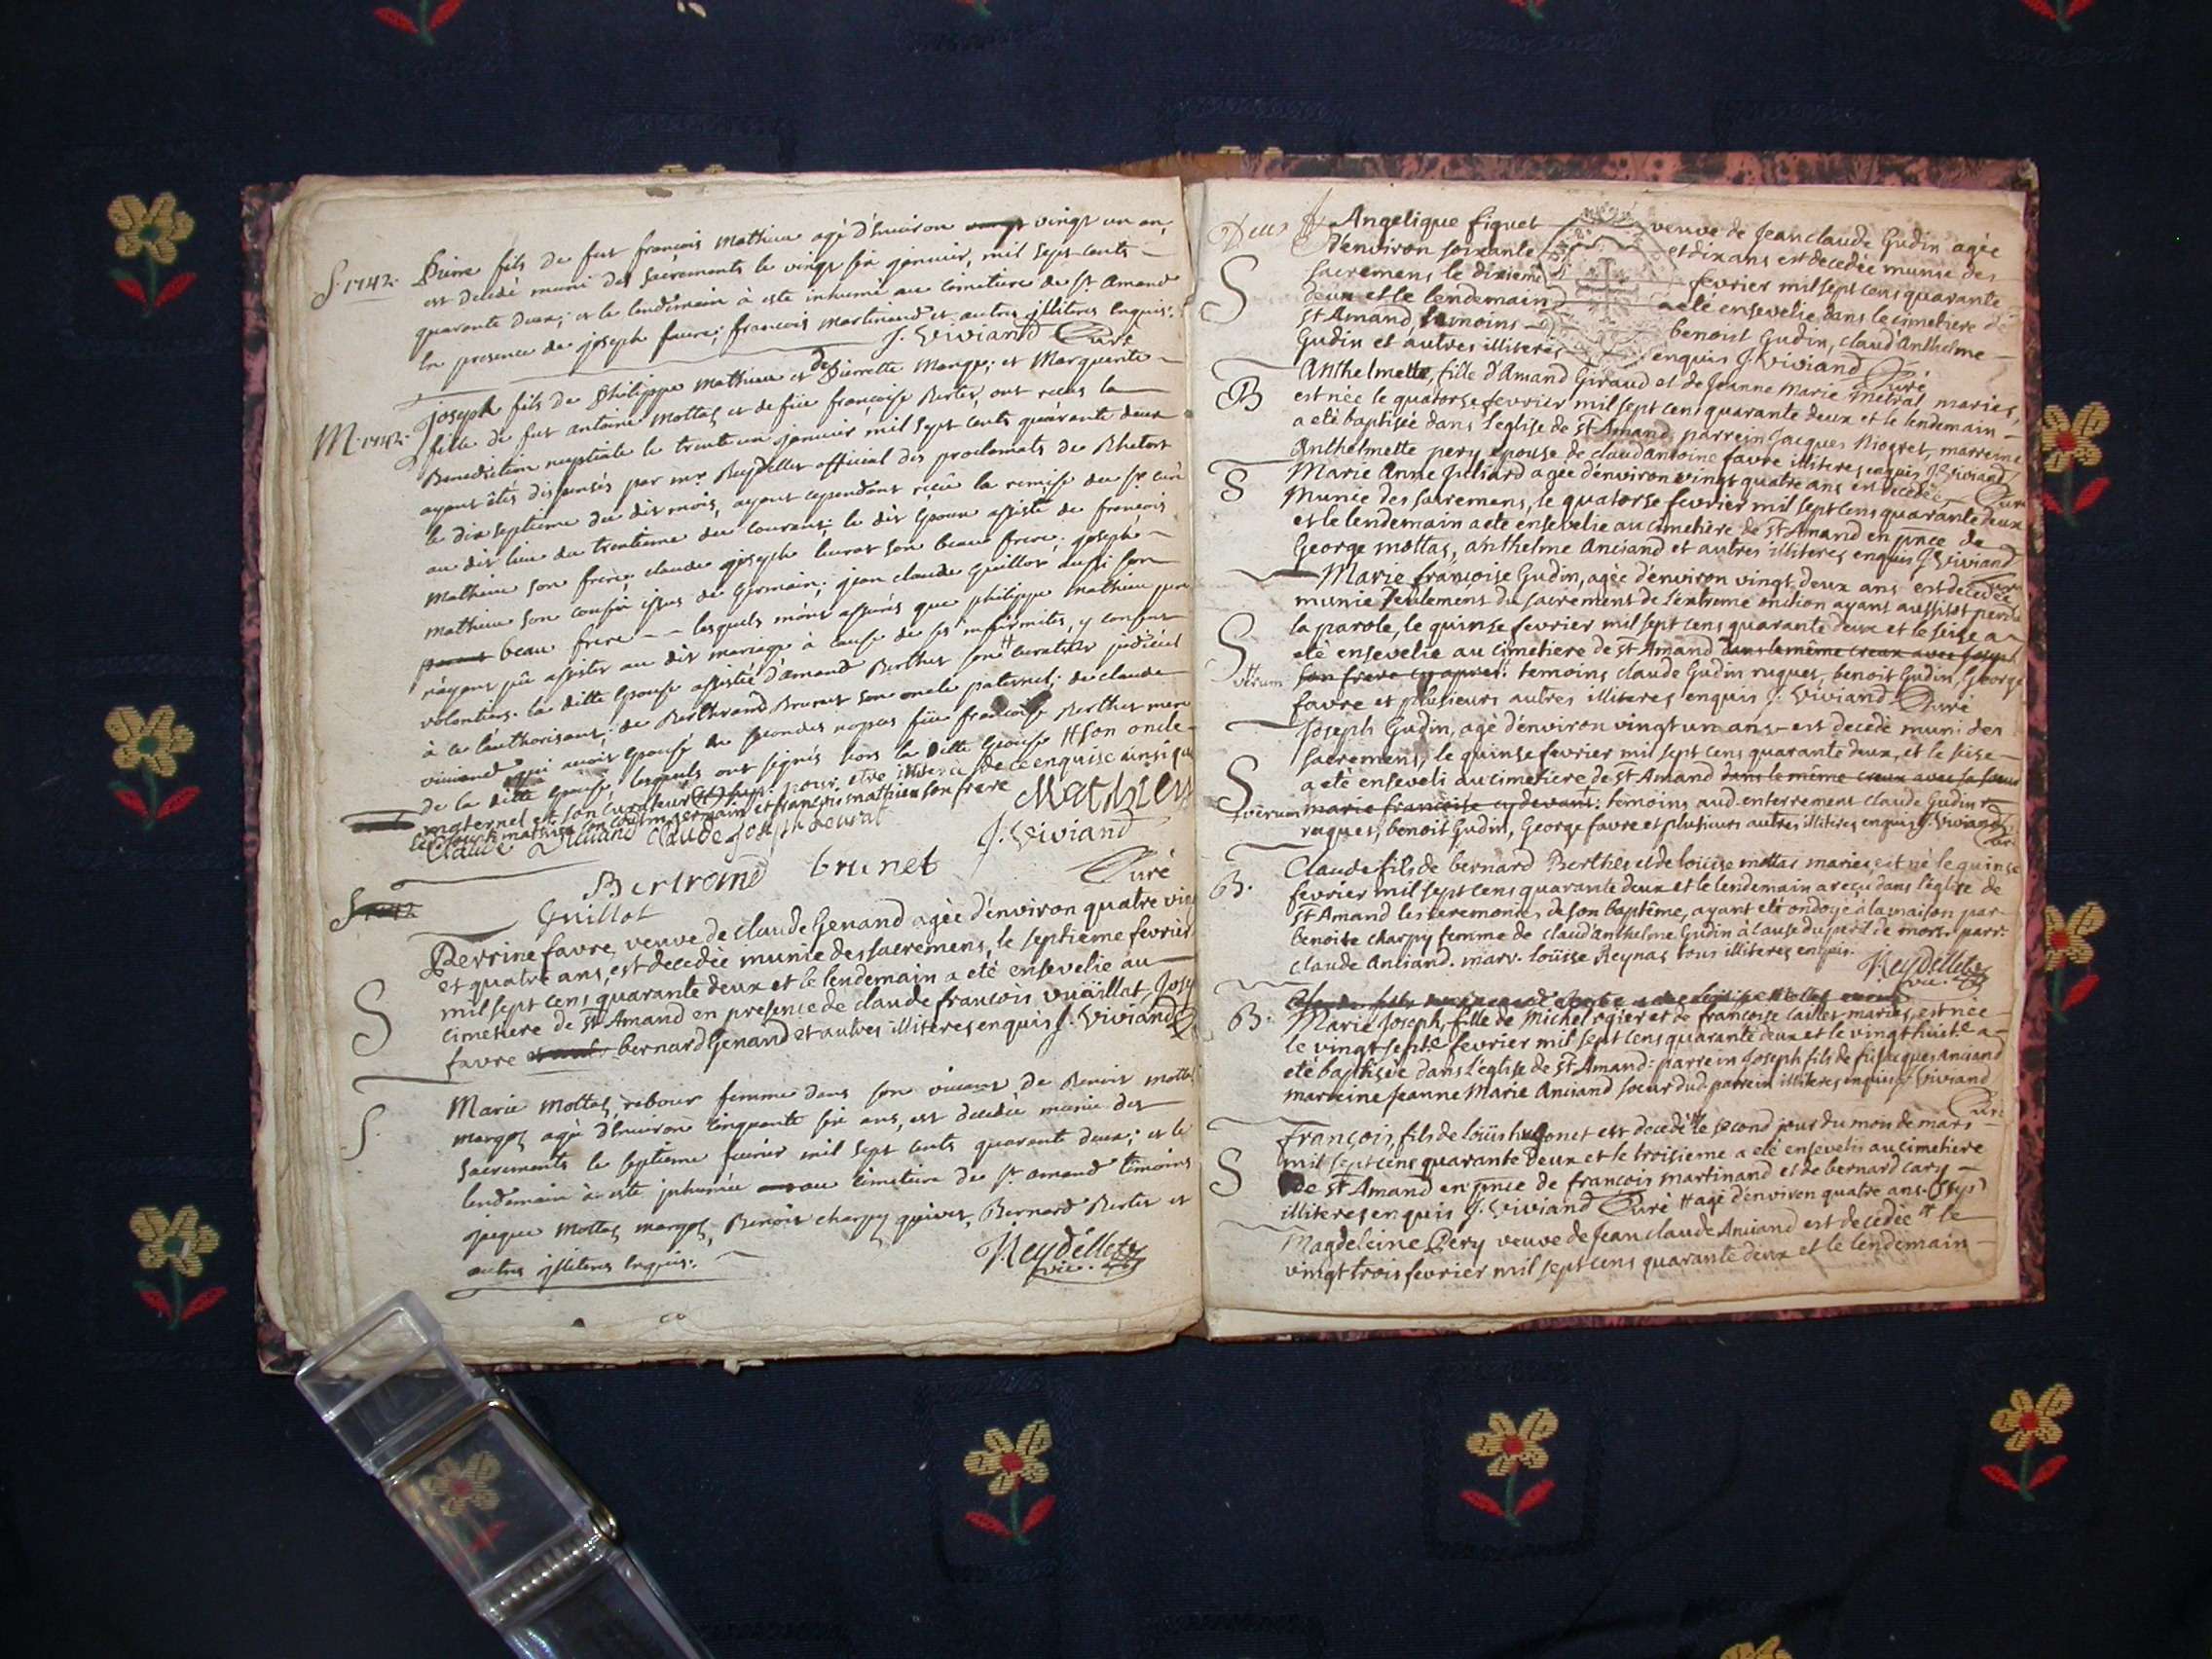 S. 1742. Pierre fils de fut françois Mathieu agé d'Environ vingt vingt un an,
est decedé muni des Sacrements le vingt six janvier, mil sept cents
quarente deux; et le lendemain à esté inhumé au cimetiere de St Amand
En presence de joseph favre; francois Martinand et autres illiteres Enquis.
J. Viviand Curé
joseph fils de Philippe Mathieu et de Pierrette Margoz; et Marguerite
M. 1742. fille de fut antoine Mottaz et de füe françoise Bertet, ont receus la
Benediction nuptiale le trente un janvier mil sept cents quarante deux
ayant êtés dispensés par mr Reydellet official des proclamats de
le dix septieme du dit mois, ayant cependant reçu la remise du Sr curé
au dit lieu du trentieme du courant; le dit Epoux assisté de francois
Mathieu son frere; claude joseph Leurat son beau frere; joseph
Mathieu son cousin issus de Germain; jean claude Guillot aussi son
beau frere -- lesquels m'ont assurés que philippe Mathieu pere
n'ayant pû assister au dit mariage à cause de ses infirmités, y consent
volontiers. la ditte Epouse assistée d'amand Berthet son # curateur
à ce l'authorisant; de Berthrand Brunet son oncle paternel; de claude
viviand qui avoit Epousé En secondes nopces füe françoise Berthet mere
de la ditte Epouse, lesquels ont signés hors la ditte Epouse # son oncle
maternel et son curateur pour etre illiteré de ce enquise ainsi que
joseph mathieu son cousin germain et françois mathieu son frere
Mathieu
Claude Viviand Claude Joseph Leurat
J. Viviand
Bertrand brunet
Curé
S 1742
Guillot
Perrine favre, veuve de claude Genand agèe d'environ quatre vin
et quatre ans, est decedèe munie des sacremens, le septieme fevrier
S
mil sept cens quarante deux et le lendemain a eté ensevelie au
cimetiere de St Amand en presence de claude francois vuäillat, Jose
favre bernard Genand et autres illiteres enquis J. Viviand
Marie Mottaz, rebour femme dans son vivant de Benoit Motta
S.
margoz agé d'Environ cinquante six ans, est decedée munie des
Sacrements le septieme fevrier mil sept cents quarante deux; et le
lendemain à esté inhumée au cimetiere de St amand temoins
jaque Mottaz margoz, Benoit charpy, Bernard Bertet et
autres illiteres Enquis.
Reydellet
vic.
Angelique figuet veuve de Jean claude Gudin agèe
d'environ soixante et dix ans est decedèe munie des
S
sacremens le dixieme fevrier mil sept cens quarante
deux et le lendemain a eté ensevelie dans le cimetiere de
St Amand, temoins benoit Gudin, claud'Anthelme
Gudin et autres illiteres enquis J. Viviand Curé
Anthelmette, fille d'Amand Giraud et de Jeanne Marie Metral mariés,
B
est née le quatorse fevrier mil sept cens quarante deux et le lendemain
a eté baptisée dans l'eglise de St Amand, parrein Jacques, marreine
Anthelmette pery epouse de claud'Antoine favre illiteres enquis J. Viviand
Curé
Marie Anne Julliard agée d'environ vingt quatre ans est decedée
S
munie des sacremens, le quatorse fevrier mil sept cens quarante deux
et le lendemain a eté ensevelie au cimetiere de St Amand en pnce de
George mottas, anthelme Anciand et autres illiteres enquis J. Viviand
Curé
Marie françoise Gudin, agée d'environ vingt deux ans est decedée
munie seulement du sacrement de l'extreme onction ayant aussitot perdu
la parole, le quinse fevrier mil sept cens quarante deux et le seise a
S
eté ensevelie au cimetiere de St Amand dans le même creux avec Joseph
son frere cy apres: temoins claude Gudin ruques, benoit Gudin, George
favre et plusieurs autres illiteres enquis J. Viviand Curé
Joseph Gudin, agé d'environ vingt un ans est decedé muni des
sacremens, le quinse fevrier mil sept cens quarante deux, et le seise
S
a eté enseveli au cimetiere de St Amand dans le même creux avec sa soeur
marie françoise cy devant: temoins aud. enterrement claude Gudin
ruques, benoit Gudin, George favre et plusieurs autres illiteres enquis J. Viviand
Curé
Claude fils de bernard Berthet et de loüise mottas mariés, est né le quinse
B.
fevrier mil sept cens quarante deux et le lendemain a reçu dans l'eglise de
St Amand les ceremonies de son baptême, ayant eté ondoyé à la maison par
benoite charpy femme de claud'anthelme Gudin à cause du peril de mort. parr.
claude Anciand. marr. loüise Reynas tous illiteres enquis.
Reydellet
vic.
B.
Marie Joseph, fille de Michel ogier et de françoise caillet mariés, est née
le vingt sept.e fevrier mil sept cens quarante deux et le vingt huit.e a
eté baptisée dans l'eglise de St Amand: parrein Joseph fils de fû Jacques Anciand
marreine Jeanne Marie Anciand soeur dud. parrein illiteres enquis J. Viviand
Curé
françois, fils de loüis hugonet est decedé # le second jour du mois de mars
mil sept cens quarante deux et le troisieme a eté enseveli au cimetiere
S
de St Amand en pnce de françois martinand et de bernard cary
illiteres enquis J. Viviand Curé # agé d'environ quatre ans
Magdeleine Pery veuve de Jean claude Anciand est decedée # le
vingt trois fevrier mil sept cens quarante deux et le lendemain